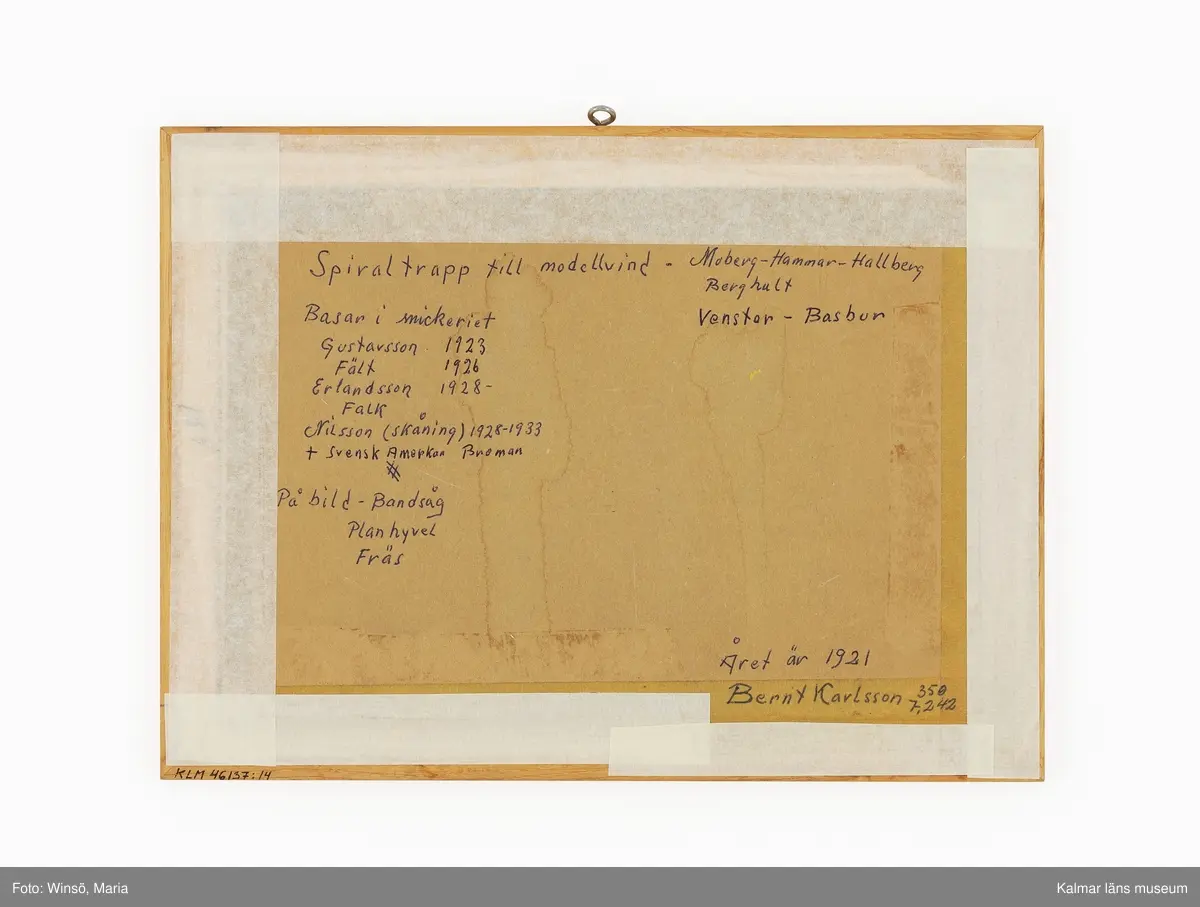 Spiraltrapp till modellvind - Moberg-Hammar-Hallberg
Berghult
Venster - Basbur
Basar i snickeriet
Gustavsson 1923
Fält 1926
Erlandsson 1928-
Falk
Nilsson (skåning) 1928-1933
+ Svensk Amerkan Broman
På bild - Bandsåg
Planhyvel
Fräs
Året är 1921
Bernt Karlsson 350
7,242
KLM 46137:14
Foto: Winsö, Maria
Kalmar läns museum